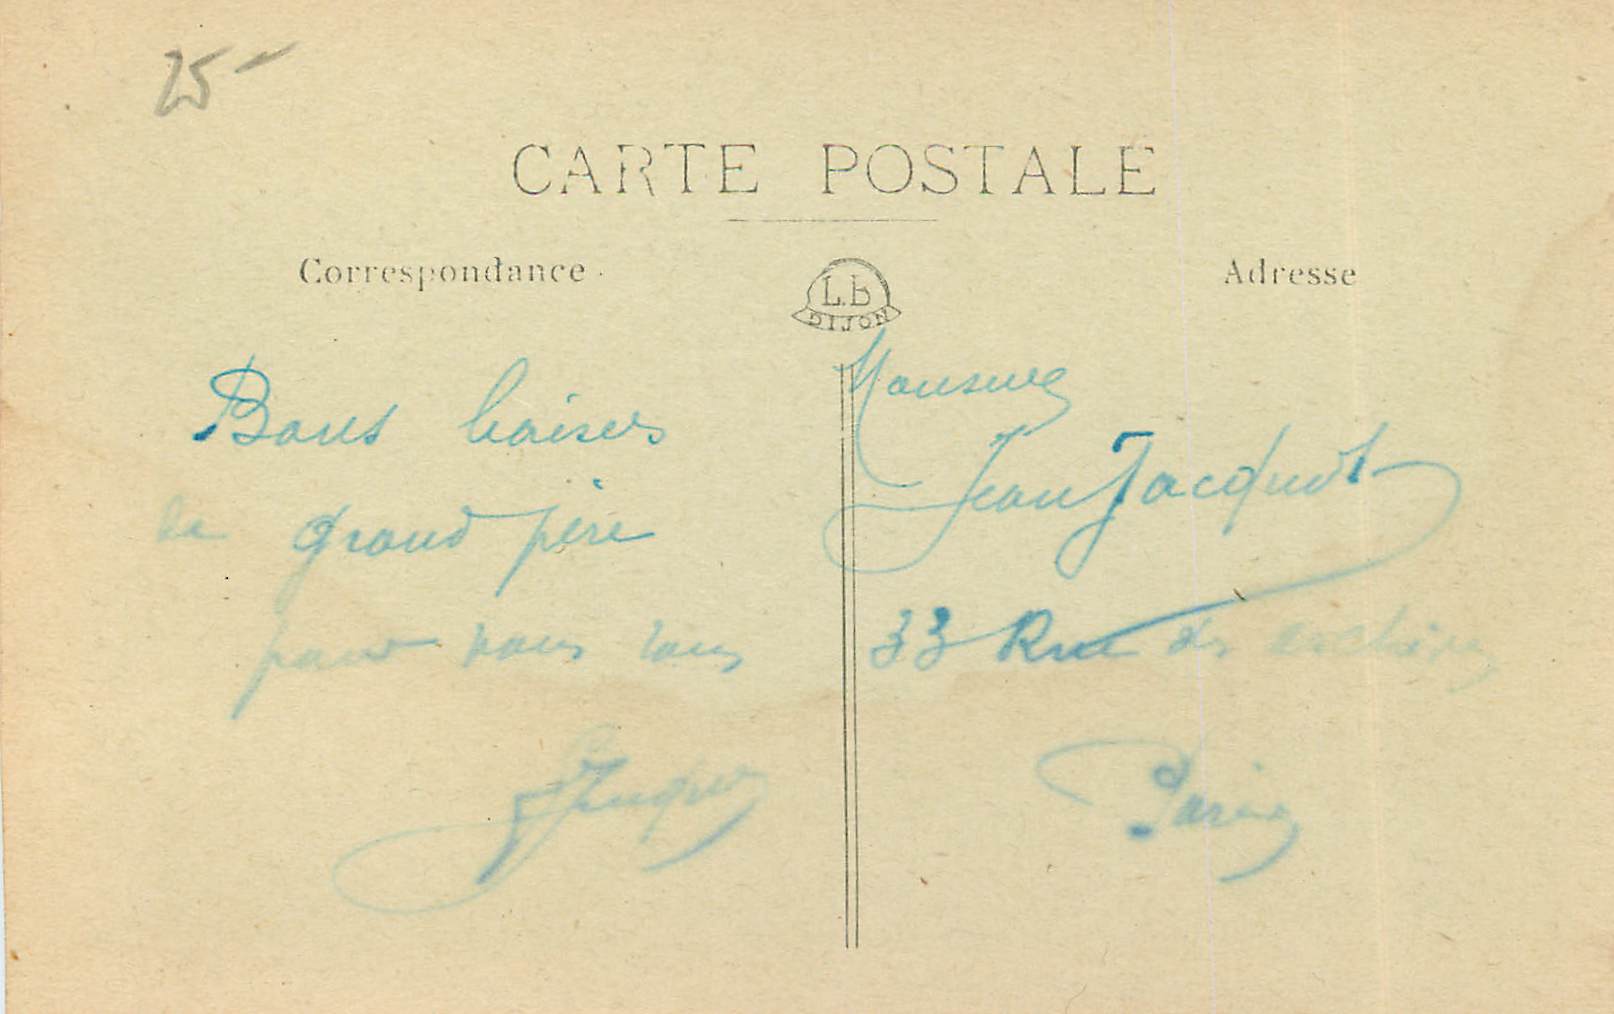 25-
CARTE POSTALE
Correspondance
Adresse
L.B
DIJON
Bons baisers
de grand père
pour vous tous
Monsieur
Jean Jacquot
33 Rue des archives
Paris